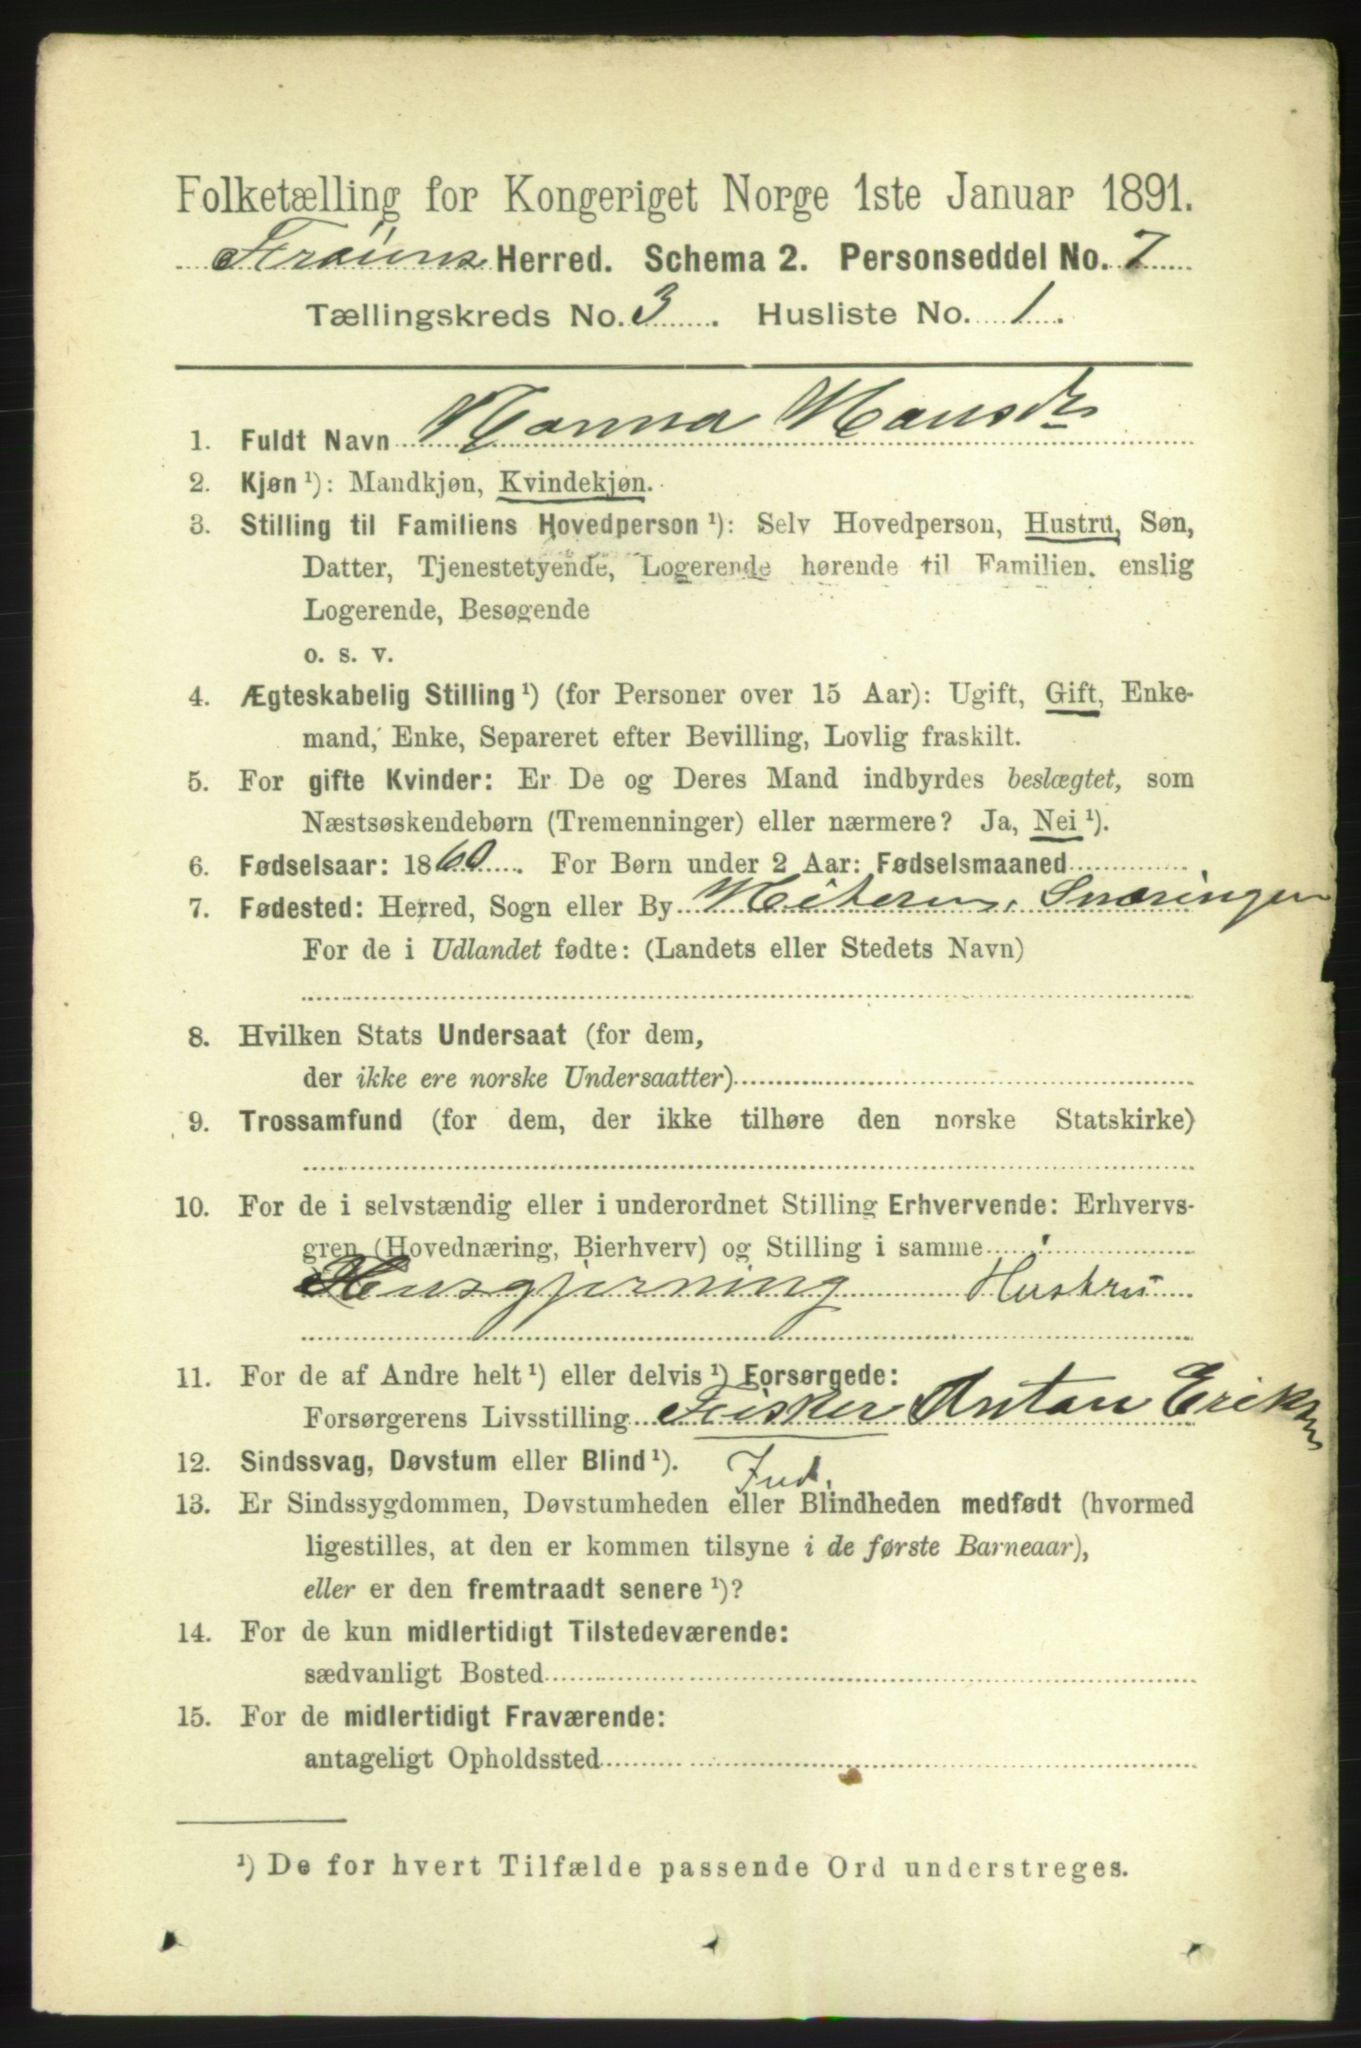 Folketælling for Kongeriget Norge 1ste Januar 1891.
Frøiens Herred. Schema 2. Personseddel No. 7
Tællingskreds No. 3. Husliste No. 1.
1. Fuldt Navn Hanna Hansdr
2. Kjøn¹): Mandkjøn, Kvindekjøn.
3. Stilling til Familiens Hovedperson¹): Selv Hovedperson, Hustru, Søn,
Datter, Tjenestetyende, Logerende hørende til Familien, enslig
Logerende, Besøgende
o. s. v.
4. Ægteskabelig Stilling¹) (for Personer over 15 Aar): Ugift, Gift, Enke-
mand, Enke, Separeret efter Bevilling, Lovlig fraskilt.
5. For gifte Kvinder: Er De og Deres Mand indbyrdes beslægtet, som
Næstsøskendebørn (Tremenninger) eller nærmere? Ja, Nei¹).
6. Fødselsaar: 1860. For Børn under 2 Aar: Fødselsmaaned
7. Fødested: Herred, Sogn eller By Hiteren, Snæringen
For de i Udlandet fødte: (Landets eller Stedets Navn)
8. Hvilken Stats Undersaat (for dem,
der ikke ere norske Undersaatter)
9. Trossamfund (for dem, der ikke tilhøre den norske Statskirke)
10. For de i selvstændig eller i underordnet Stilling Erhvervende: Erhvervs-
gren (Hovednæring, Bierhverv) og Stilling i samme
Husgjerning Hustru
11. For de af Andre helt¹) eller delvis¹) Forsørgede:
Forsørgerens Livsstilling Fisker Anton Eriksen
12. Sindssvag, Døvstum eller Blind¹).
13. Er Sindssygdommen, Døvstumheden eller Blindheden medfødt (hvormed
ligestilles, at den er kommen tilsyne i de første Barneaar),
eller er den fremtraadt senere¹)?
14. For de kun midlertidigt Tilstedeværende:
sædvanligt Bosted
15. For de midlertidigt Fraværende:
antageligt Opholdssted
¹) De for hvert Tilfælde passende Ord understreges.